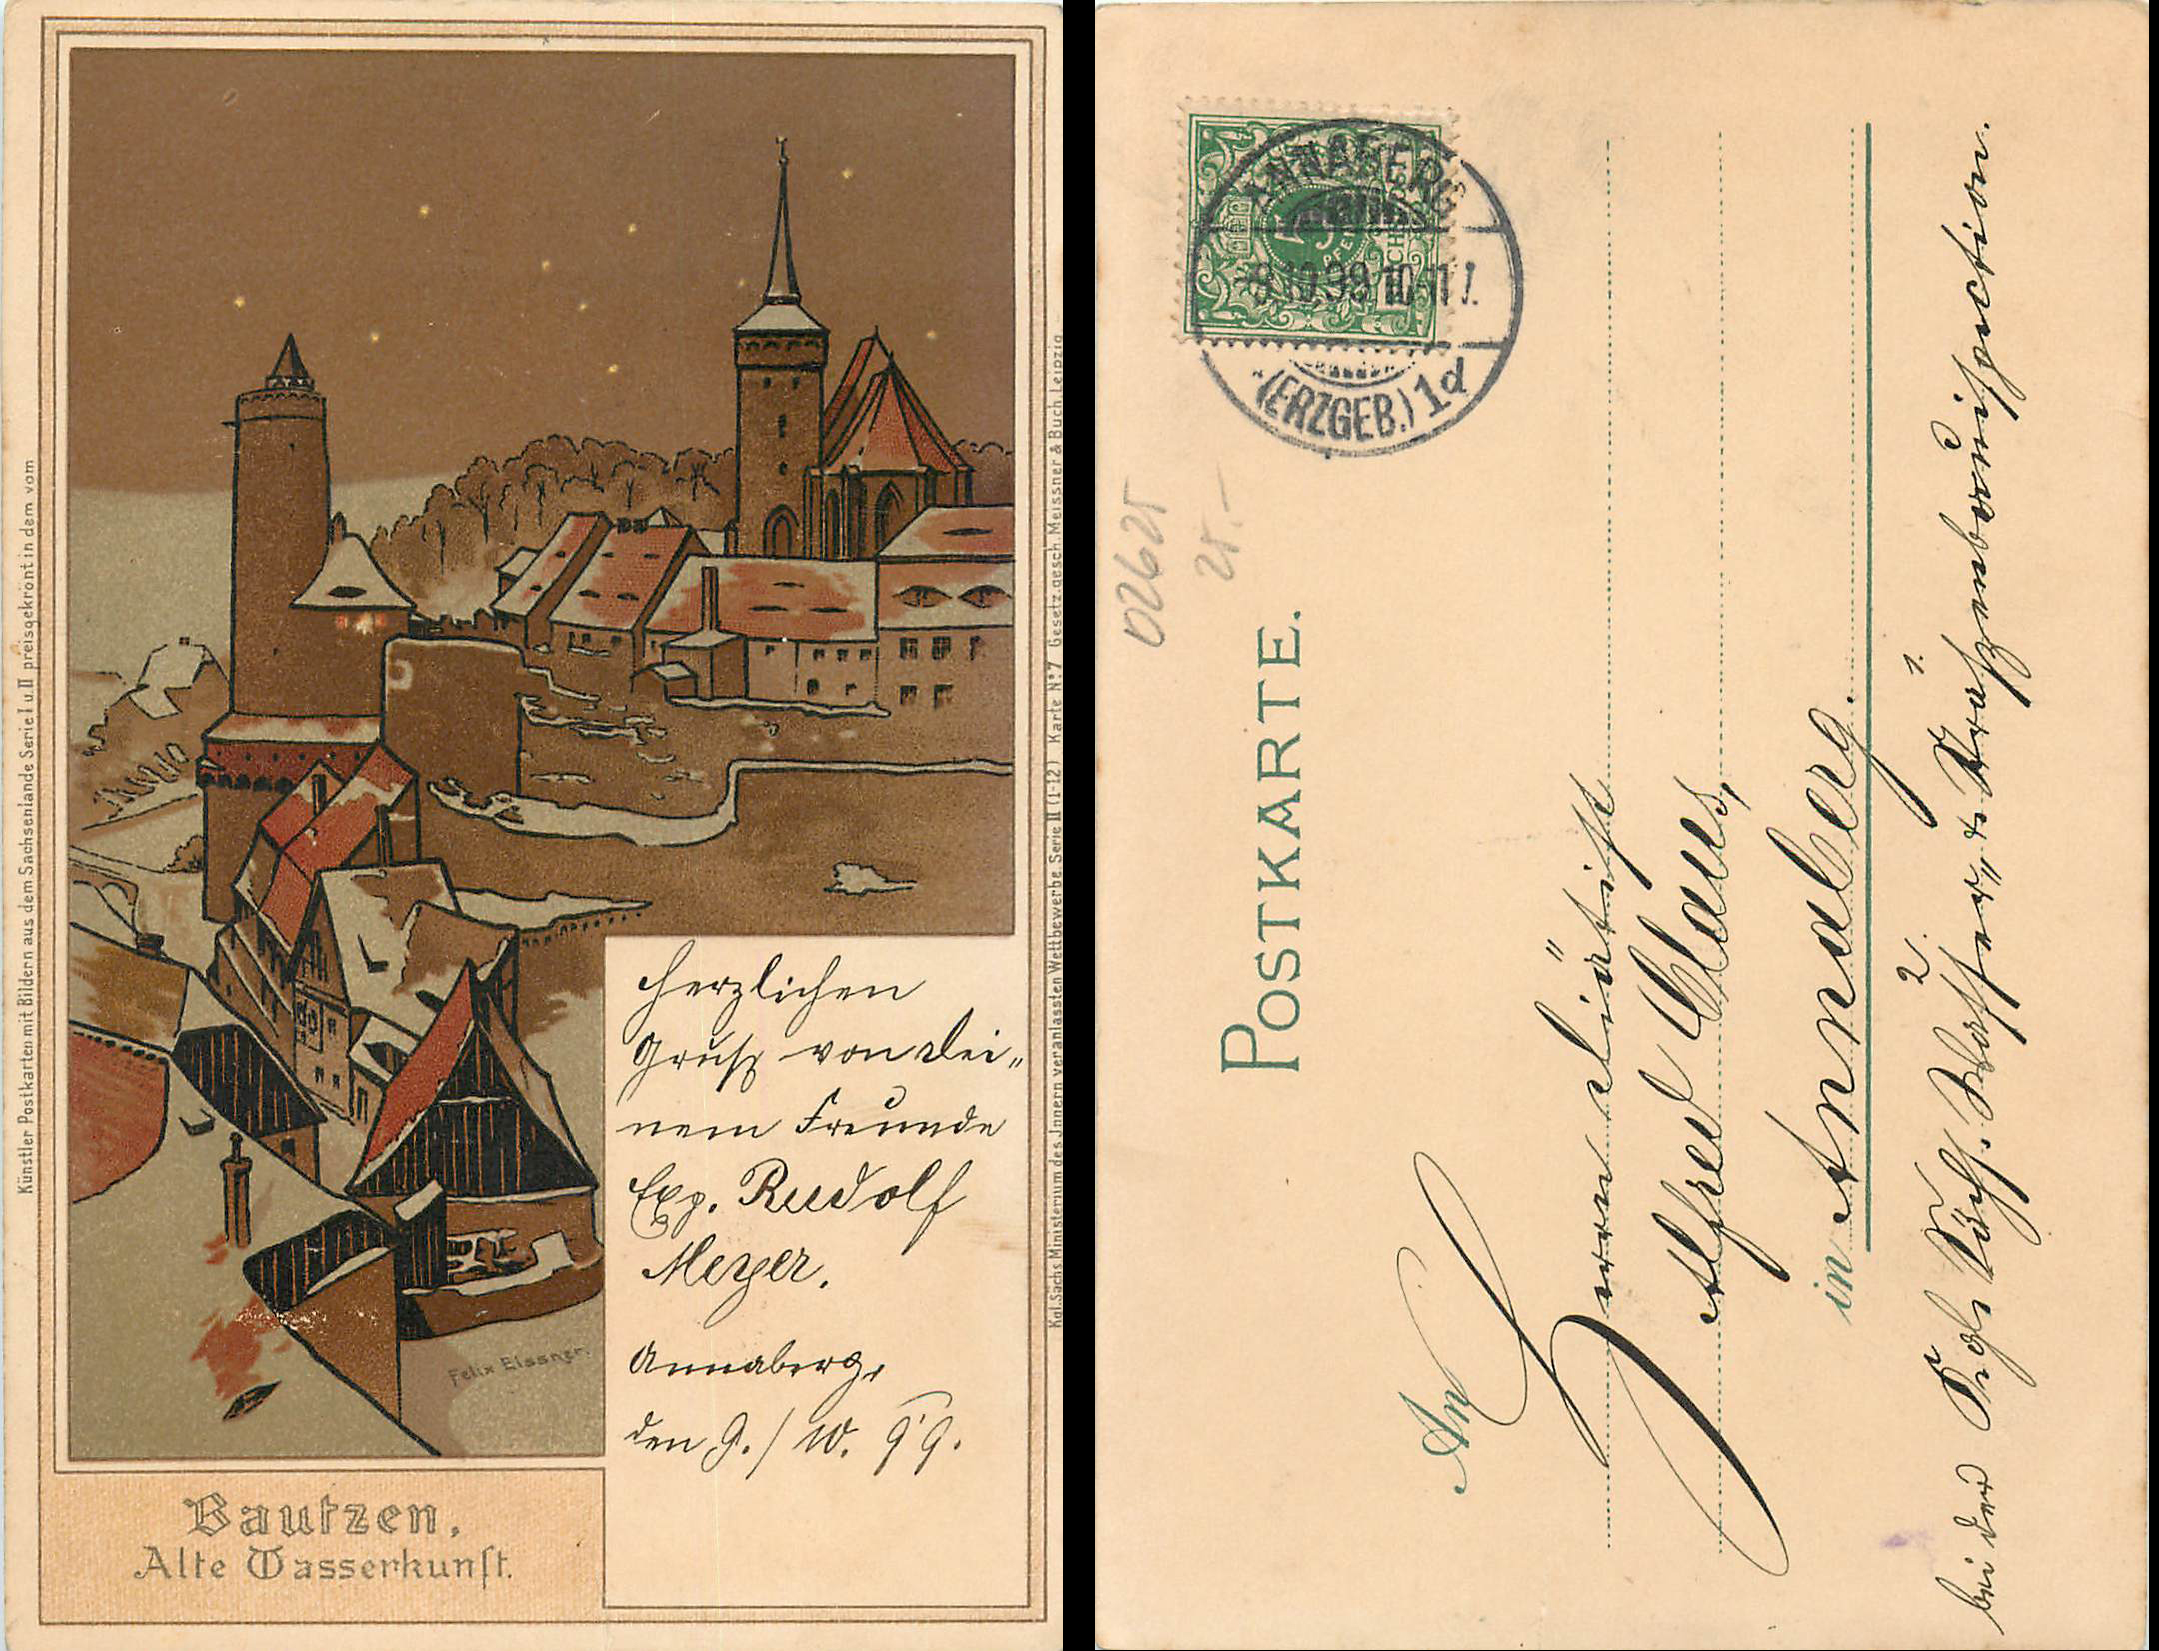 Künstler Postkarten mit Bildern aus dem Sachsenlande Serie I u. II preisgekront in dem vom
Kgl. Sächs Ministerium des Jnnern veranlassten Wettbewerbe. Serie II (1-12) Karte No. 7 Gesetz. gesch. Meissner & Buch, Leipzig
Herzlichen
Gruß von Dei„
nem Freunde
Exp. Rudolf
Meyer.
Annaberg,
den 9./10. 99.
Felix Elssner.
Bautzen,
Alte Wasserkunst.
ANNABERG
10.99 10-11
(ERZGEB.) 1d
02625
POSTKARTE.
An
Herrn
Alfred Claus,
in Annaberg.
bei der Kgl. Sächs. Wasser„ & Straßenbauinspection.
2. 1.